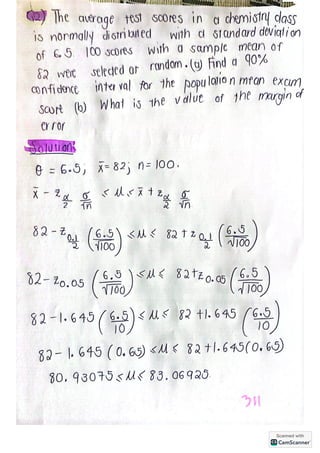 Q2) The average test scores in a chemistry class
is normally distributed with a standard deviation
of 6.5. 100 scores with a sample mean of
82 were selected at random. (a) Find a 90%
confidence interval for the population mean exam
score (b) What is the value of the margin of
error
Solution:
θ = 6.5; x̄ = 82; n = 100.
x̄ - z α/2 σ/√n ≤ μ ≤ x̄ + z α/2 σ/√n
82 - z 0.1/2 (6.5/√100) ≤ μ ≤ 82 + z 0.1/2 (6.5/√100)
82 - z0.05 (6.5/√100) ≤ μ ≤ 82 + z0.05 (6.5/√100)
82 - 1.645 (6.5/10) ≤ μ ≤ 82 + 1.645 (6.5/10)
82 - 1.645 (0.65) ≤ μ ≤ 82 + 1.645 (0.65)
80.93075 ≤ μ ≤ 83.06925
311
Scanned with
CamScanner